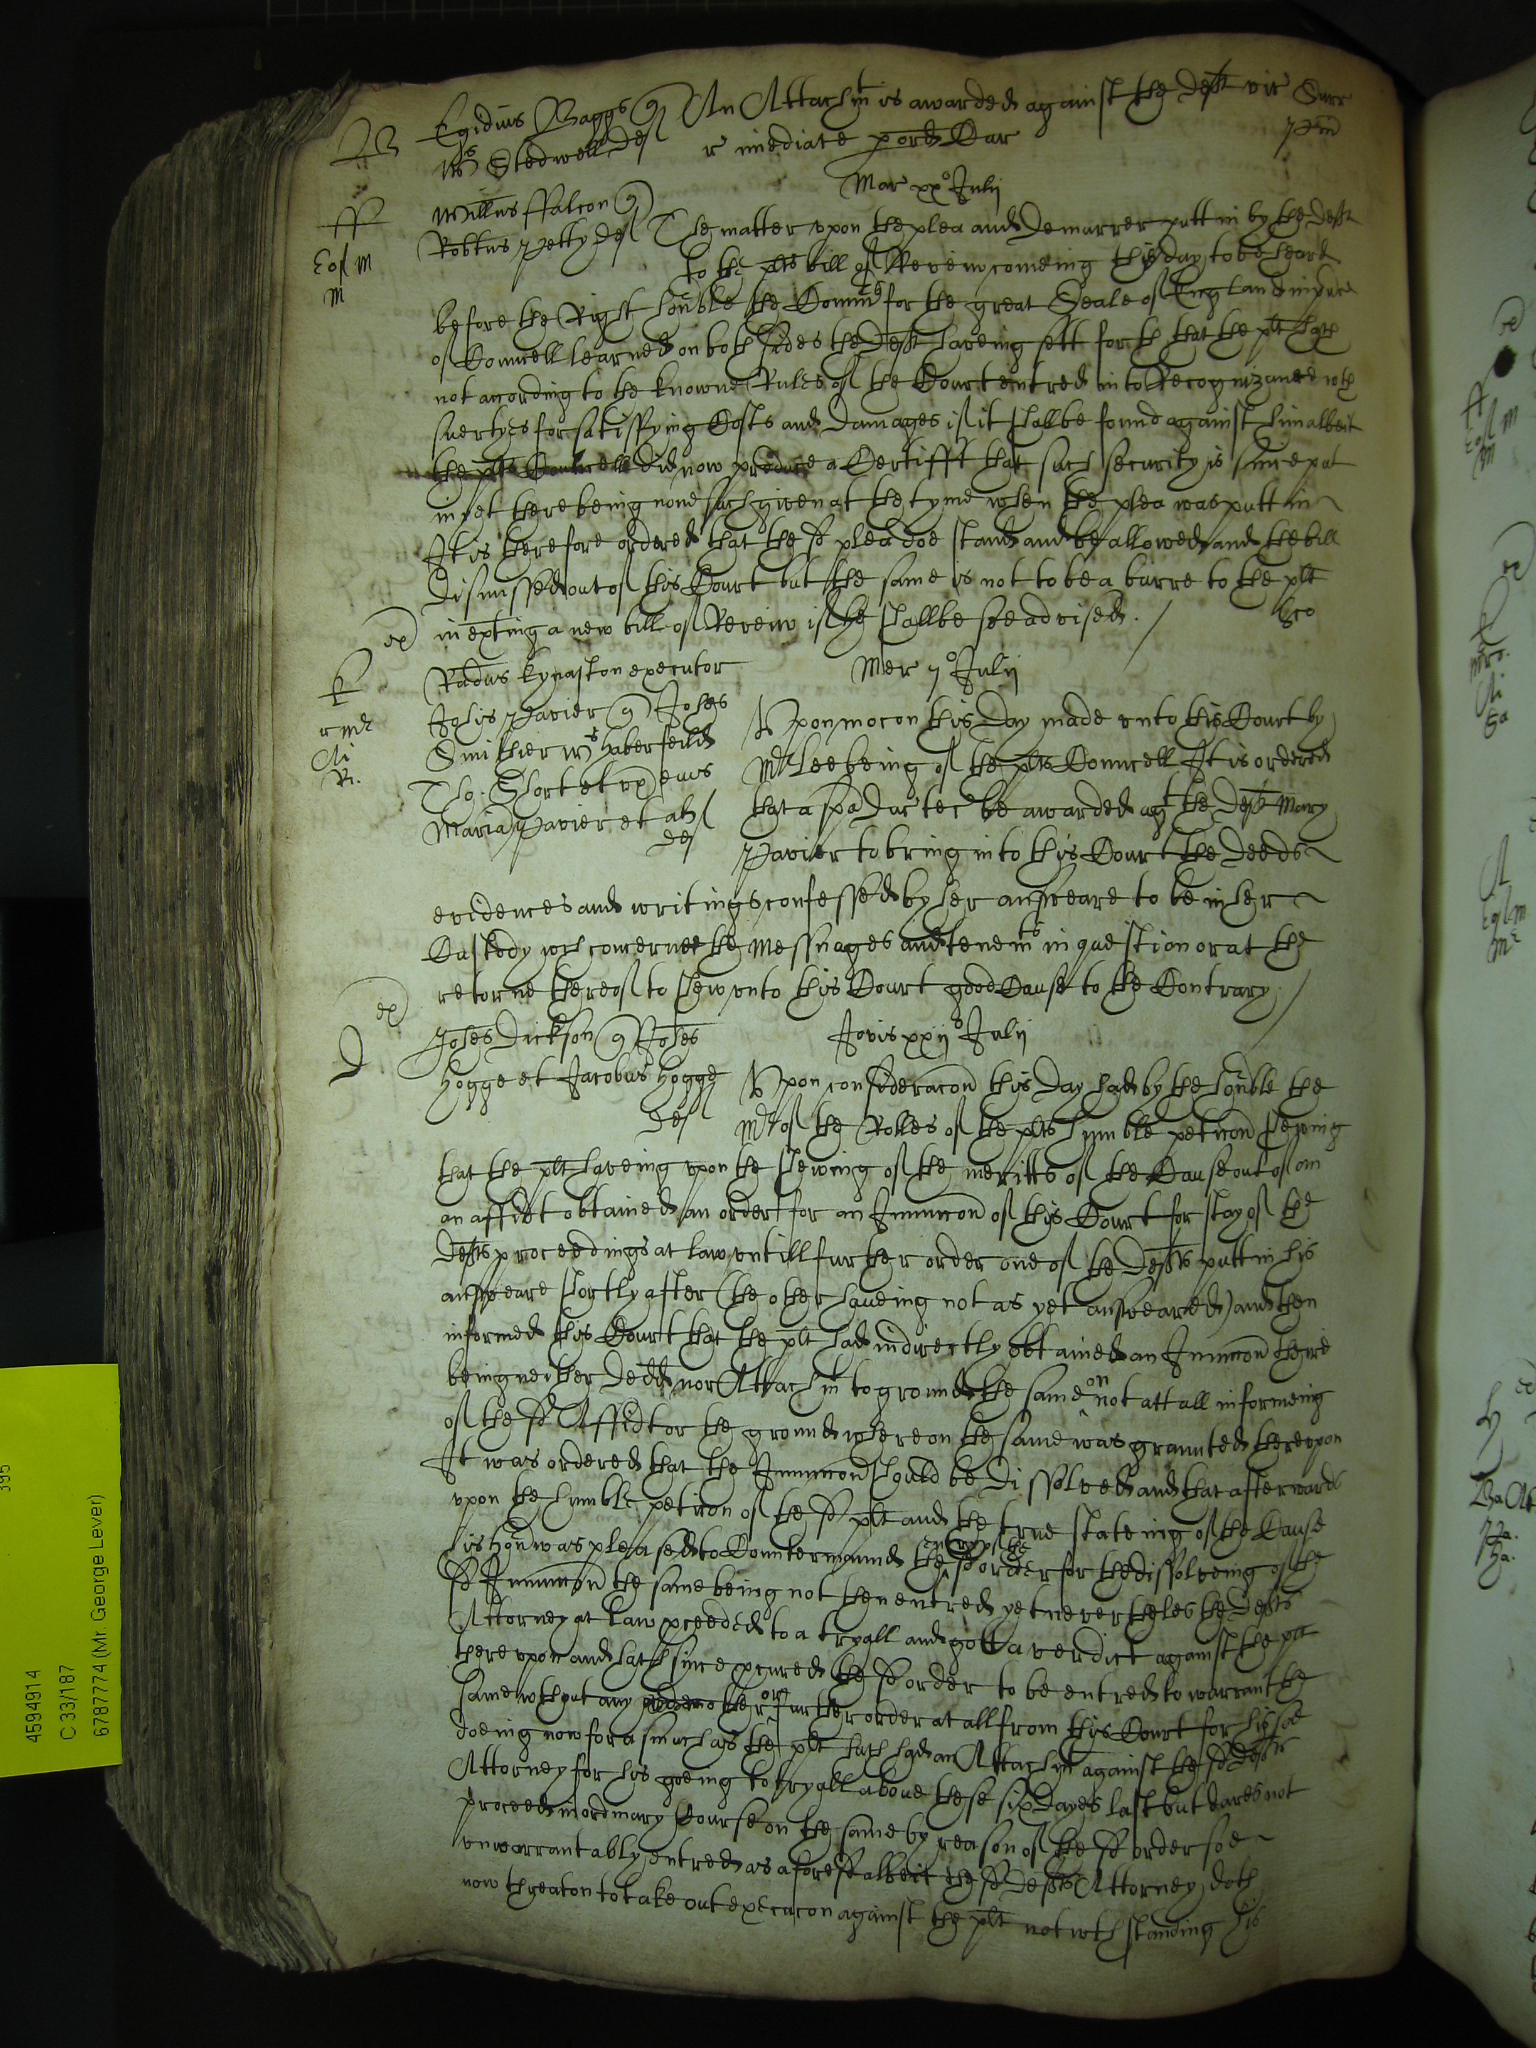 B Egidius Baggs q An Attachmt is awarded against the deft vic Surr
Ws Stedwell def r imediate p ord Cur
Mar xx° Julii
ff Willus ffalcon q
Robtus Petty def The matter upon the plea and Demurrer putt in by the deft
to the plts bill of Reveiw comeing this day to be heard
before the Right honble the Commrs for the great Seale of England in pnce
of Councell learned on both sides the deft haveing sett forth that the plt hath
not according to the knowne Rules of the Court entred into Recognizance wth
suertyes for satisfying Costs and Damages if it shalbe found against him albeit
the plts Councell did now produce a Certifft that such security is since put
in yet there being none such given at the tyme when the plea was putt in
It is therefore ordered that the sd plea doe stand and be allowed and the bill
dismissed out of this Court but the same is not to be a barre to the plt
in exhting a new bill of Reveiw if he shalbe soe advised.
Radus Kynaston executor Mer 7° Julii
Johis Pavier q Johes
Smithier Ws Haberfeild
Tho. Short et ux eius
Maria Pavier et als
def
Upon mocon this day made unto this Court by
Mr Lee being of the plts Councell It is ordered
that a spa Duc tec be awarded agt the deft Mary
Pavier to bring into this Court the deeds
evidences and writings confessed by her answeare to be in her
Custody wch concerne the Messuages and tenemts in question or at the
retorne thereof to shew unto this Court good Cause to the Contrary
D Johes Dickson q Johes Jovis xxii° Julii
Hogge et Jacobus Hogge
def
Upon consideracon this day had by the honble the
Mr of the Rolles of the plts humble peticon shewing
that the plt haveing upon the shewing of the meritts of the Cause out of on
an affidt obtained an order for an Iniunccon of this Court for stay of the
defts proceedings at law untill further order one of the defts putt in his
answeare shortly after (the other haveing not as yet answeared) and then
informed this Court that the plt had indirectly obtained an Iniunccon there
being neither dedd nor Attachmt to ground the same on not att all informeing
of the sd Affidt or the ground whereon the same was graunted thereupon
It was ordered that the Iniunccon should be dissolved and that afterwards
upon the humble peticon of the sd plt and the true stateing of the Cause
his honr was pleased to Countermaund the sd order for the dissolveing of the
sd Iniunccon the same being not then entred yet nevertheles the defts
Attorney at law pceeded to a tryall and gott a verdict against the plt
thereupon and hath since pcured the sd order to be entred to warrant the
same without any other or further order at all from this Court for his soe
doeing now forasmuch as the plt hath had an Attachmt against the sd defts
Attorney for his goeing to tryall above these six dayes last but dares not
proceed in ordinary Course on the same by reason of the sd order soe
unwarrantably entred as aforesd albeit the sd defts Attorney doth
now threaton to take out execucon against the plt not wthstanding his
4594914
C 33/187
6787774 (Mr. George Lever)